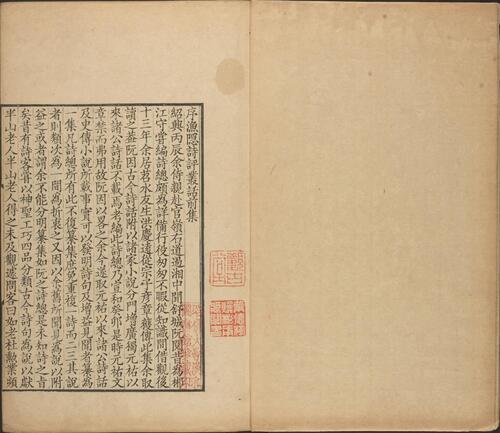 序漁隱詩評叢話前集
紹興丙辰余侍親赴官嶺右道過湘中聞舒城阮閱昔為郴
江守嘗編詩總頗為詳備行役匆匆不暇從知識間借觀後
十三年余居苕水友生洪慶遠從宗子彥章獲傳此集余取
讀之蓋阮因古今詩話附以諸家小說分門增廣獨元祐以
來諸公詩話不載焉考編此詩總乃宣和癸卯是時元祐文
章禁而弗用故阮因以畧之余今遂取元祐以來諸公詩話
及史傳小說所載事實可以發明詩句及增益見聞者纂為
一集凡詩總所有此不復纂集庶免重複一詩而二三其說
者則類次為一間為折衷之又因以余舊所聞見為說以附
益之或者謂余不能分明纂集如阮之詩總是未知詩之旨
矣昔有詩客嘗以神聖工巧四品分類古今詩句為說以獻
半山老人半山老人得之未及觀遽問客曰如老杜勲業頻